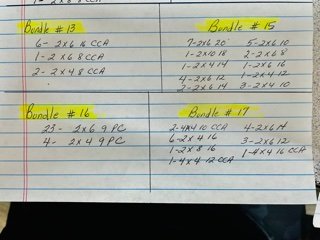 Bundle # 13
6- 2x6 16 CCA
1- 2x6 8 CCA
2- 2x4 8 CCA
Bundle # 15
7-2x6 20 5-2x6 10
1-2x10 18 2-2x6 8
1-2x4 14 1-2x6 16
4-2x6 12 1-2x4 12
2-2x6 14 3-2x4 10
Bundle # 16
23- 2x6 9 PC
4- 2x4 9 PC
Bundle # 17
2-4x4 10 CCA 4-2x6 14
6-2x4 16 3-2x6 12
1-2x8 16 1-4x4 16 CCA
1-4x4 12 CCA